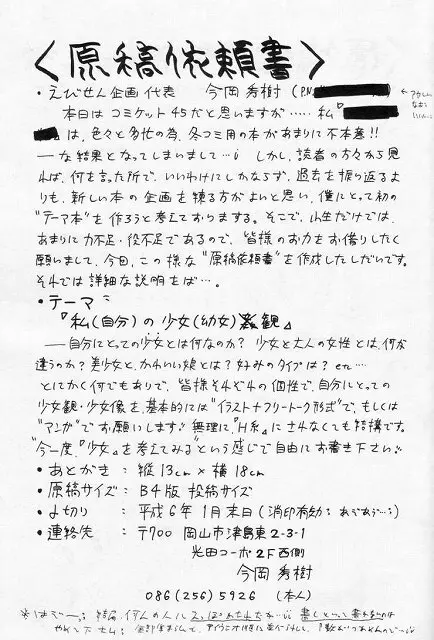 〈原稿依頼書〉
・えびせん企画 代表 今岡 秀樹 (P.N.
本日はコミケット45だと思いますが‥‥‥私『
は、色々と多忙の為、冬コミ用の本があまりに不本意!!
──な結果となってしまいまして…。しかし、読者の方々から見
れば、何を言った所で、いいわけにしかならず、過去を振り返るよ
りも、新しい本の企画を練る方がよいと思い、僕にとって初の
“テーマ本”を作ろうと考えております。そこで、小生だけでは、
あまりに力不足・役不足であるので、皆様のお力をお借りしたく
願いまして、今回、この様な“原稿依頼書”を作成したしだいです。
それでは詳細な説明をば…。
・テーマ:
『私(自分)の 少女(幼女)観』
──自分にとっての少女とは何なのか? 少女と大人の女性とは、何が
違うのか? 美少女と、かわいい娘とは? 好みのタイプは? etc…
とにかく何でもありで、皆様それぞれの個性で、自分にとっての
少女観・少女像を、基本的には“イラスト+フリートーク形式”で、もしくは
“マンガ”でお願いします。無理に『H系』にされなくても結構です。
“今一度、『少女』を考えてみる”という感じで自由にお書き下さい。
・あとがき : 縦13cm × 横18cm
・原稿サイズ : B4版 投稿サイズ
・〆切り : 平成6年1月末日 (消印有効:
・連絡先 : 〒700 岡山市津島東2-3-1
光田コーポ 2F西側
今岡 秀樹
086(256)5926 (本人)